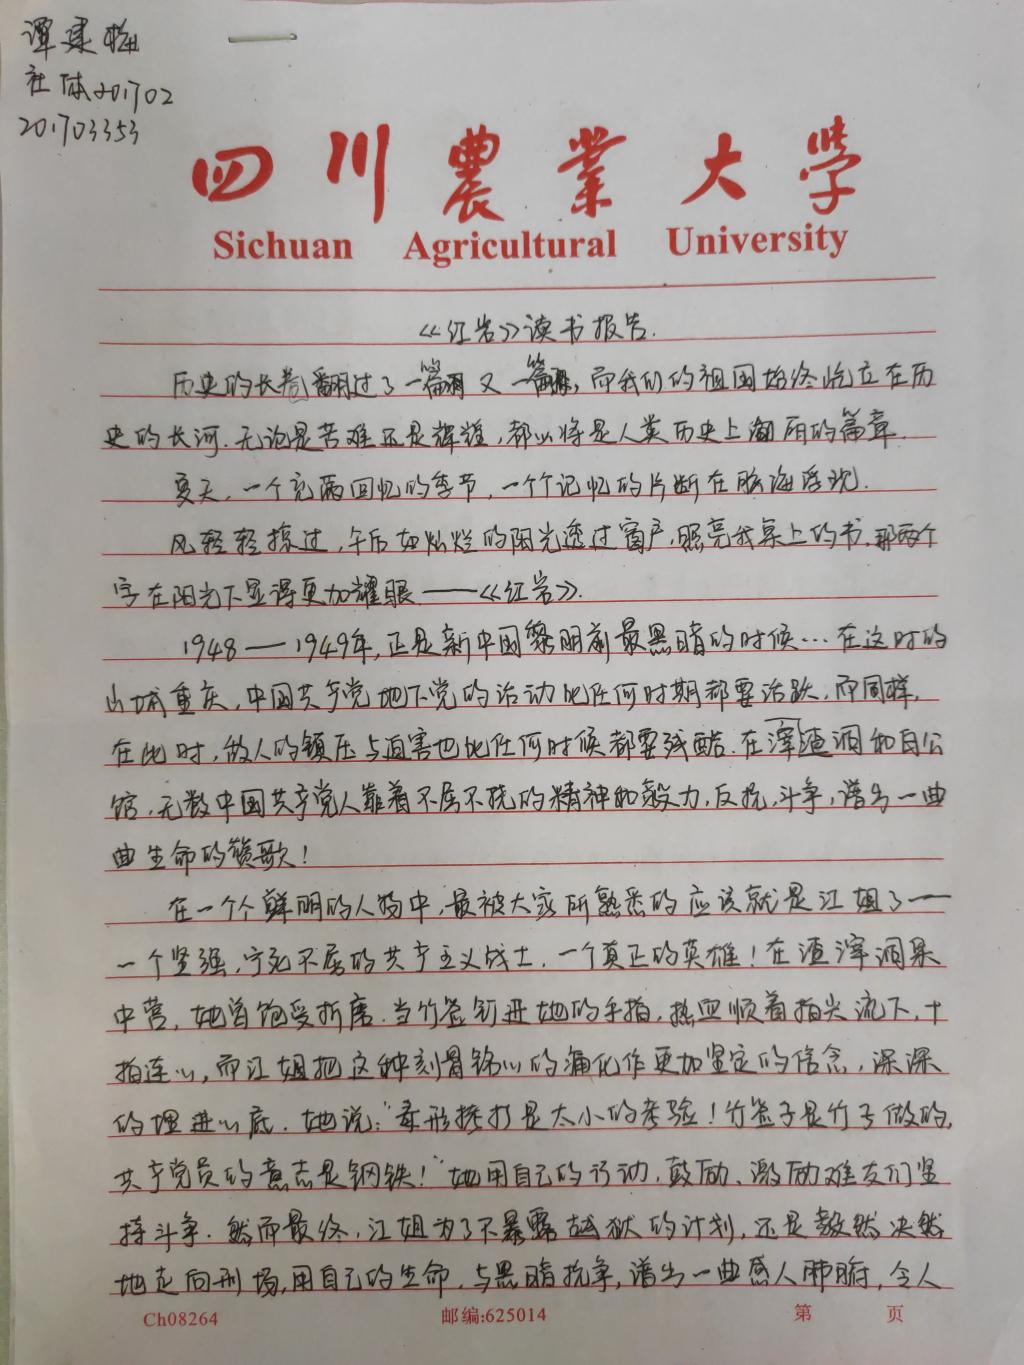 谭建梅
社体201702
201703353
四川農業大學
Sichuan Agricultural University
《红岩》读书报告.
历史的长卷翻过了一篇又一篇,而我们的祖国始终屹立在历
史的长河.无论是苦难还是辉煌,都必将是人类历史上的篇章.
夏天,一个充满回忆的季节,一个个记忆的片断在脑海浮现.
风轻轻掠过,午后如灿烂的阳光透过窗户,照亮我桌上的书,那两个
字在阳光下显得更加耀眼——《红岩》.
1948—1949年,正是新中国黎明前最黑暗的时候…在这时的
山城重庆,中国共产党地下党的活动比任何时期都要活跃,而同样,
在此时,敌人的镇压与迫害也比任何时候都要残酷.在滓渣洞和白公
馆,无数中国共产党人靠着不屈不挠的精神和毅力,反抗,斗争,谱出一曲
曲生命的赞歌!
在一个个鲜明的人物中,最被大家所熟悉的应该就是江姐了—
一个坚强,宁死不屈的共产主义战士,一个真正的英雄!在渣滓洞集
中营,她曾饱受折磨.当竹签钉进她的手指,热血顺着指尖流下,十
指连心,而江姐把这种刻骨铭心的痛化作更加坚定的信念,深深
的埋进心底.她说:"毒刑拷打是太小的考验!竹签子是竹子做的,
共产党员的意志是钢铁!"她用自己的行动,鼓励、激励难友们坚
持斗争.然而最终,江姐为了不暴露越狱的计划,还是毅然决然
地走向刑场,用自己的生命,与黑暗抗争,谱出一曲感人肺腑,令人
Ch08264 邮编:625014 第 页